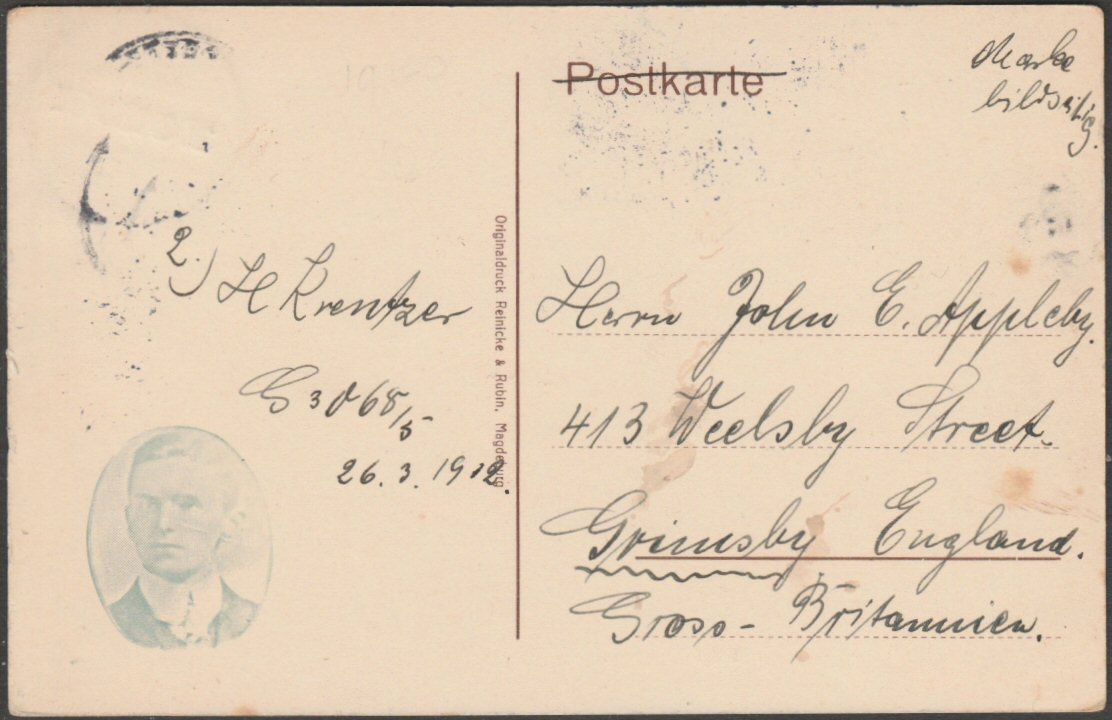 Postkarte
Marke
bildseitig.
2.) H Krentzer
G 3068/5
26.3.1912.
Originaldruck Reinicke & Rubin, Magdeburg
Herrn John E. Appleby.
413 Weelsby Street.
Grimsby England.
Gross-Britannien.